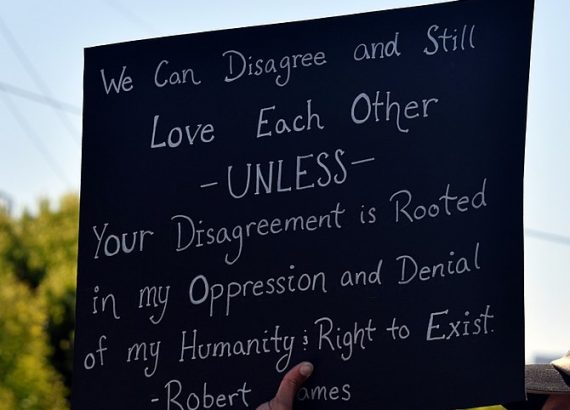 We Can Disagree and Still
Love Each Other
-UNLESS-
Your Disagreement is Rooted
in my Oppression and Denial
of my Humanity & Right to Exist.
-Robert ames